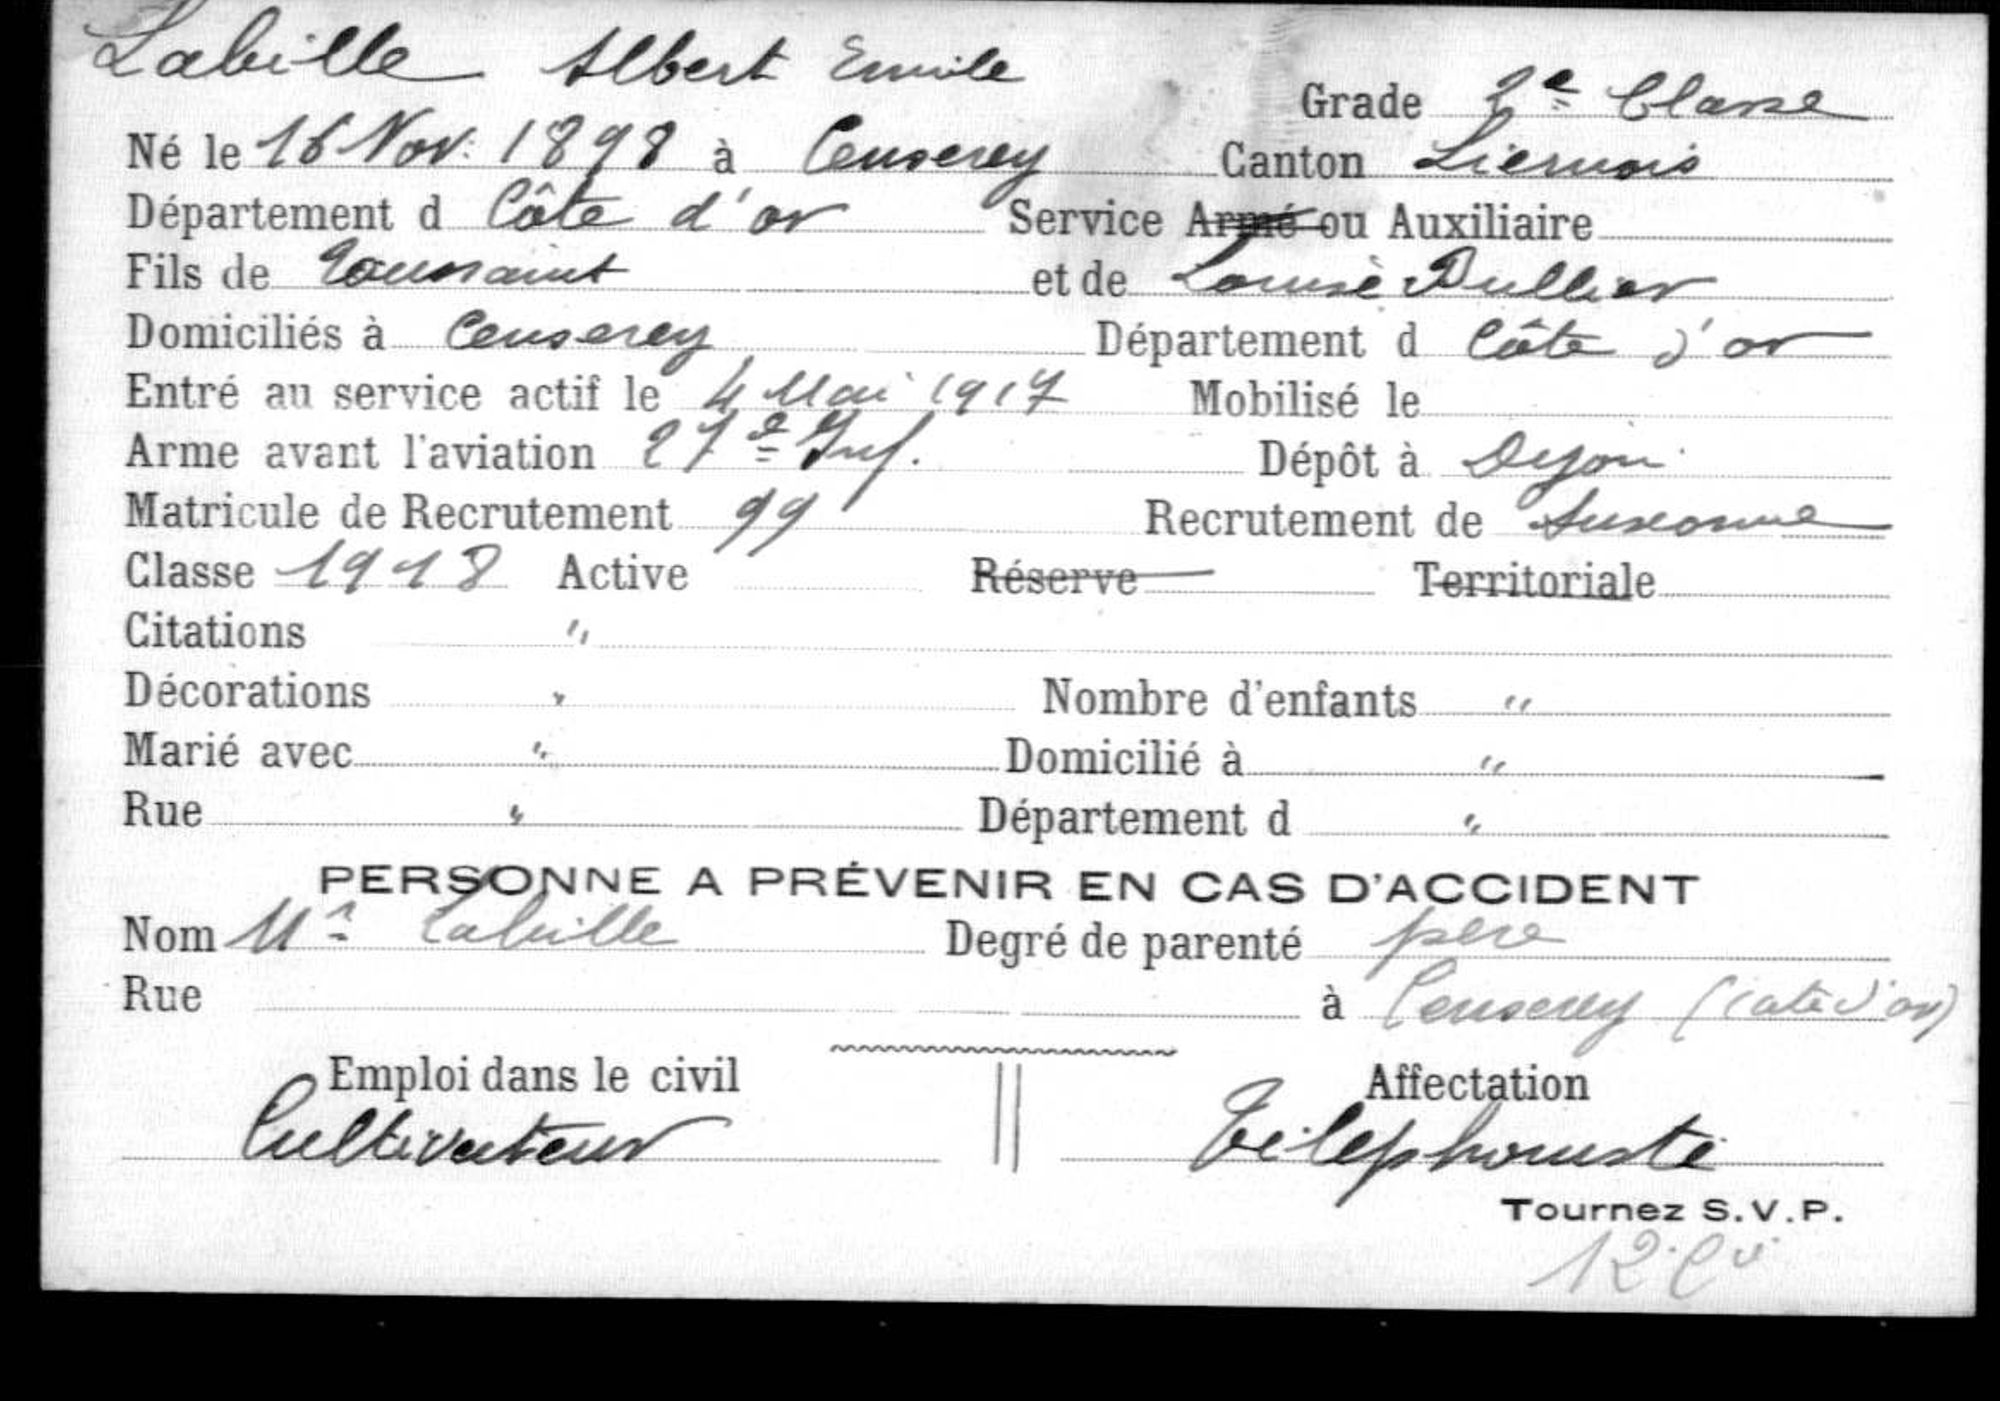 Labille Albert Emile
Grade 2e Classe
Né le 16 Nov. 1898 à Censerey Canton Liernais
Département d Côte d'or Service Armé ou Auxiliaire
Fils de Toussaint et de Louise Dullier
Domiciliés à Censerey Département d Côte d'or
Entré au service actif le 4 Mai 1917 Mobilisé le
Arme avant l'aviation 27e Inf. Dépôt à Dijon
Matricule de Recrutement 99 Recrutement de Auxonne
Classe 1918 Active Réserve Territoriale
Citations "
Décorations " Nombre d'enfants "
Marié avec " Domicilié à "
Rue " Département d "
PERSONNE A PRÉVENIR EN CAS D'ACCIDENT
Nom Mr Labille Degré de parenté père
Rue à Censerey (Côte d'or)
Emploi dans le civil Affectation
Cultivateur Téléphoniste
Tournez S.V.P.